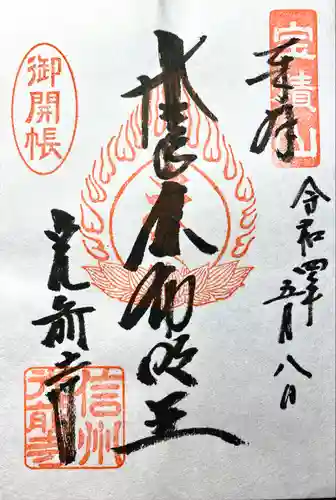 宝積山
奉拝
令和四年五月八日
不動明王
御開帳
光前寺
信州
光前寺